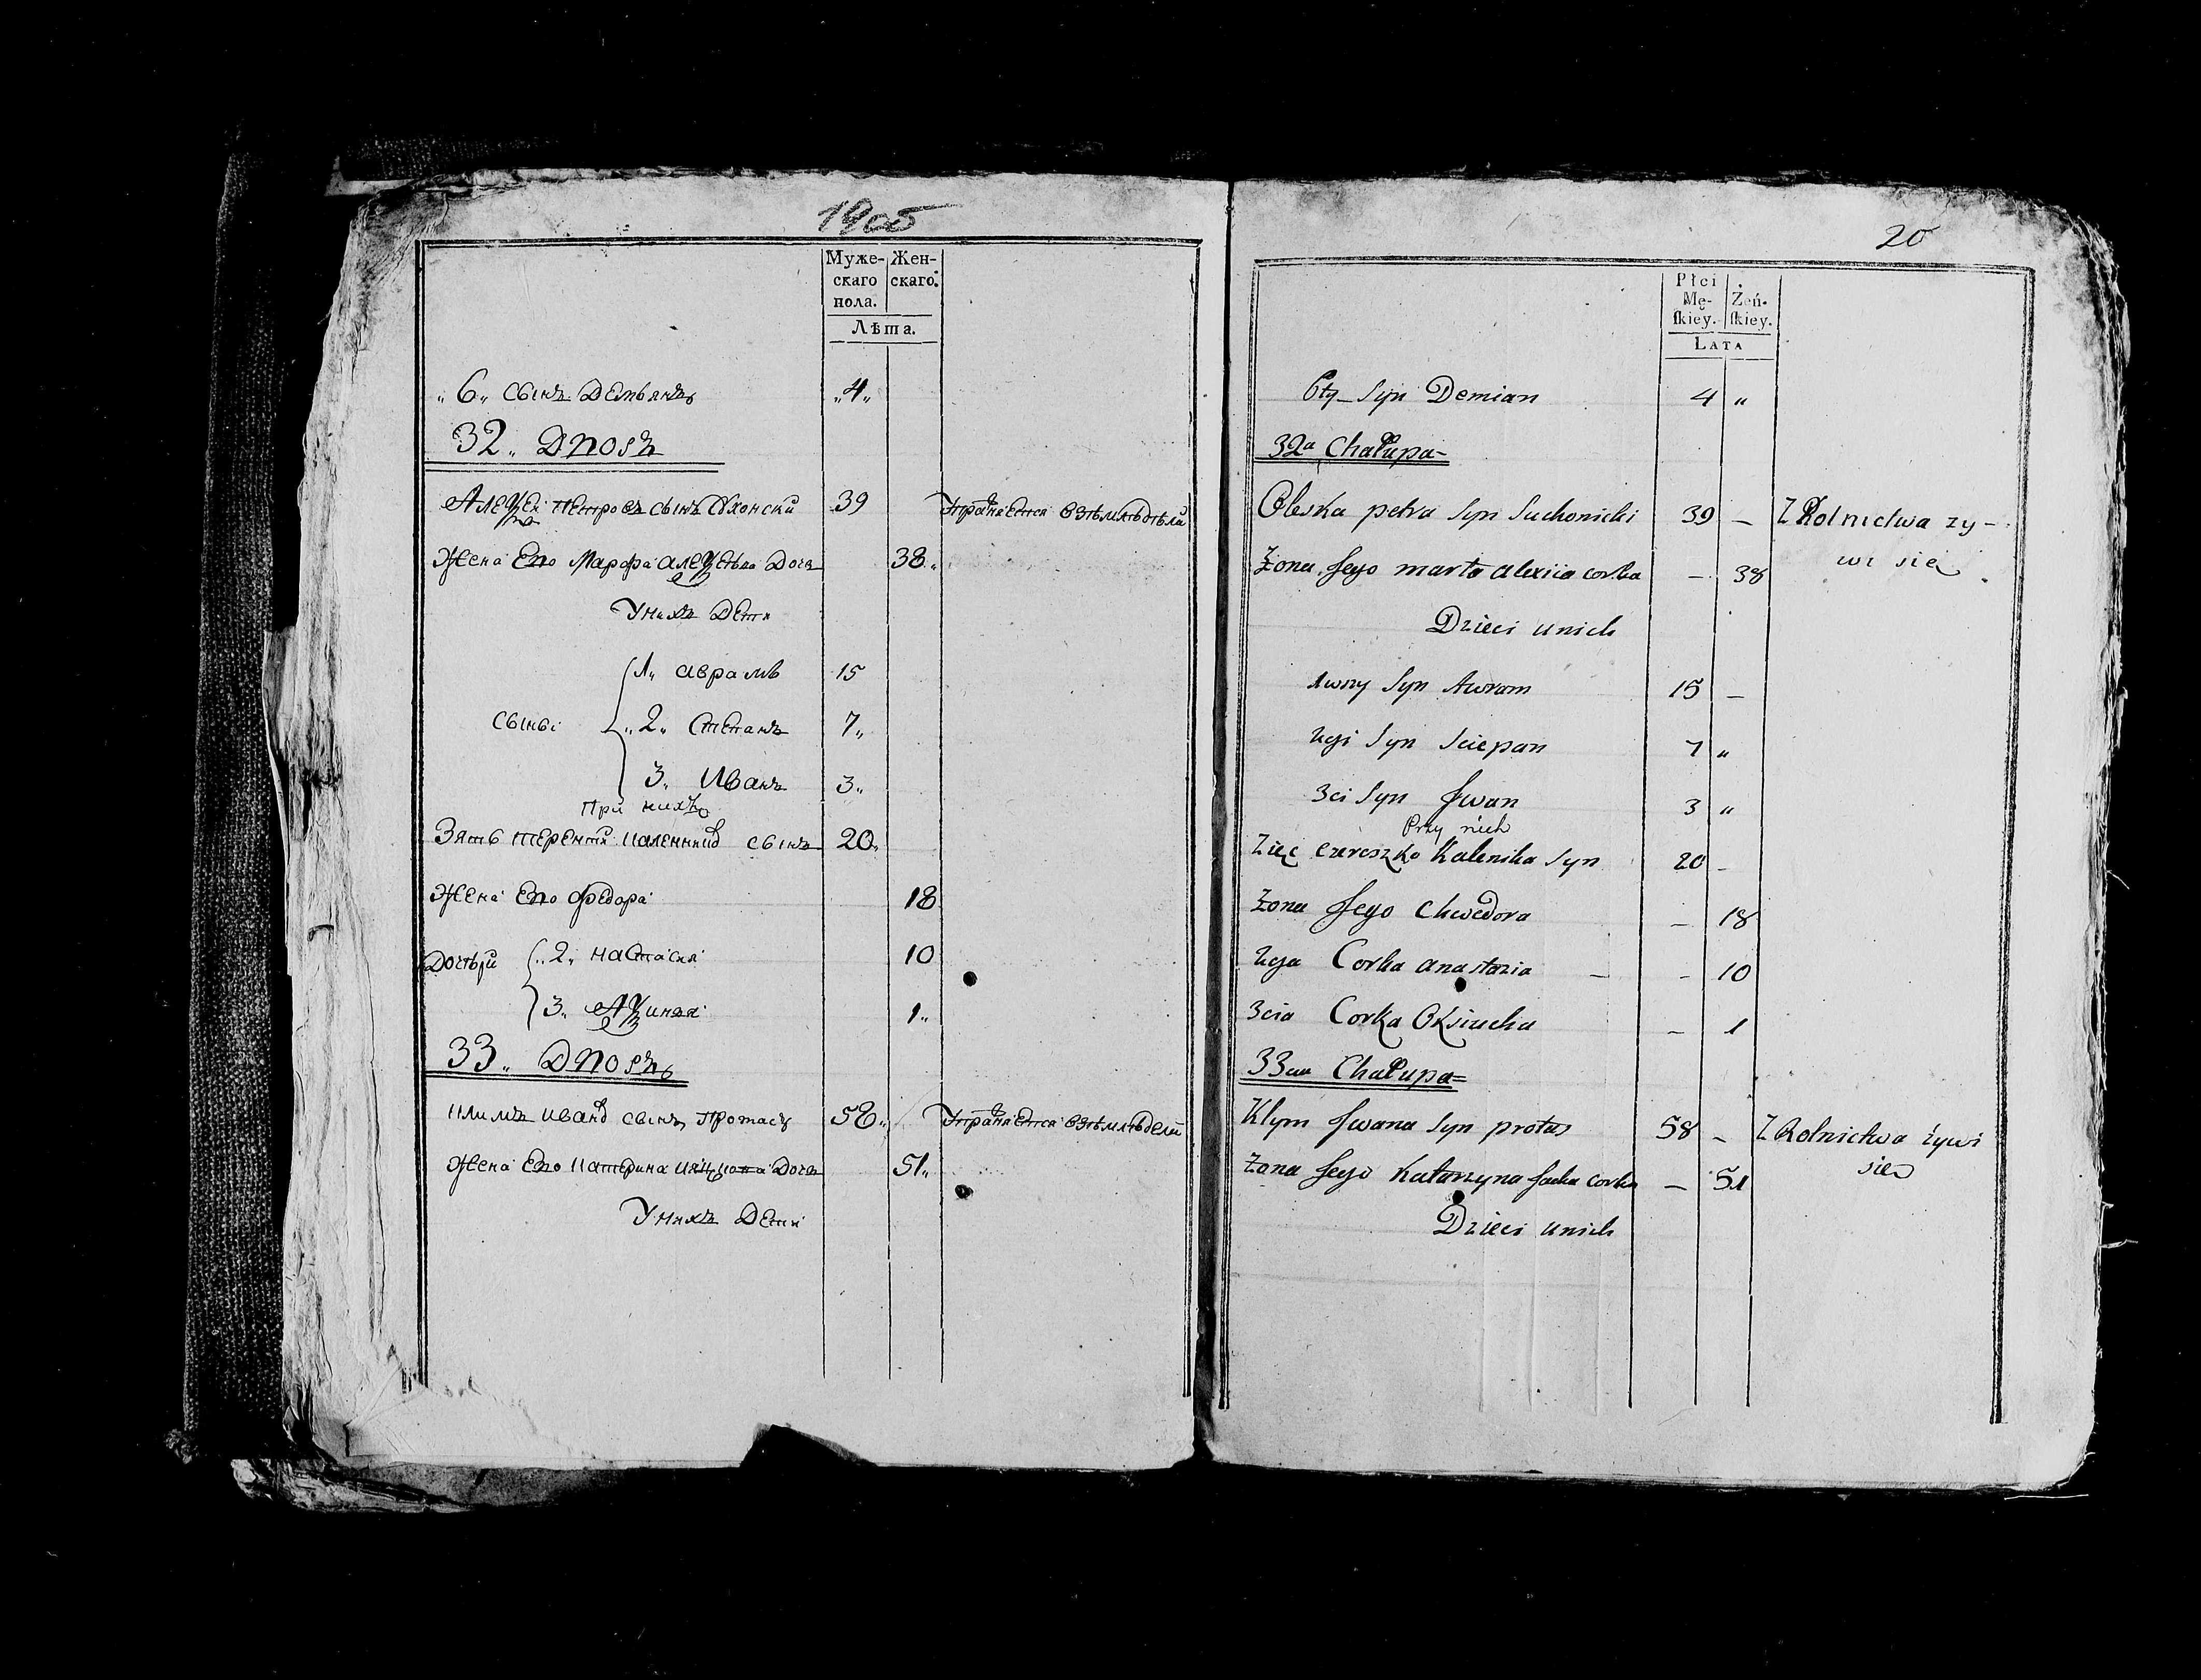 19об
Муже-
скаго
пола.
Жен-
скаго.
Лѣта.
„ 6„ сынъ Демьянъ „4„
32„ Дворъ
Алеѯеі Петровъ сынъ Сухонски 39 Упражняется взѣмлѣдѣли
Жена Его Марфа алеѯѣева Дочь 38„
Унихъ Дети
1„ аврамъ 15
сыны „ 2„ Степанъ 7„
3„ Иванъ 3„
При нихъ
Зять терентй каленикив сынъ 20„
Жена Его Федора 18
Дочѣри „ 2„ настасия 10
3„ Аѯиния 1„
33„ Дворъ
климъ иванв сынъ Протасъ 58„ Упражняется взѣмлѣдели
Жена Его катѣрина Дочь 51„
Унихъ Дети
20
Płci
Mę-
ſkiey.
Żeń-
ſkiey.
LATA
6ty Syn Demian 4 „
32a Chałupa
Oleska petra Syn Suchonicki 39 – Z Rolnictwa zy-
wi się
Zona Jego marta alexiia corka – 38
Dzieci unich
1wszy Syn Awram 15 –
2gi Syn Sciepan 7 „
3ci Syn Jwan 3 „
Przy nich
Zięc czereszko Kalenika Syn 20 –
Zona Jego Chwedora – 18
2ga Corka anastazia – – 10
3cia Corka Oksiucha – 1
33cia Chałupa
Klym Jwana Syn protas 58 – Z Rolnictwa żywi
się
Zona Jego Katarzyna Jacka corka – 51
Dzieci unich